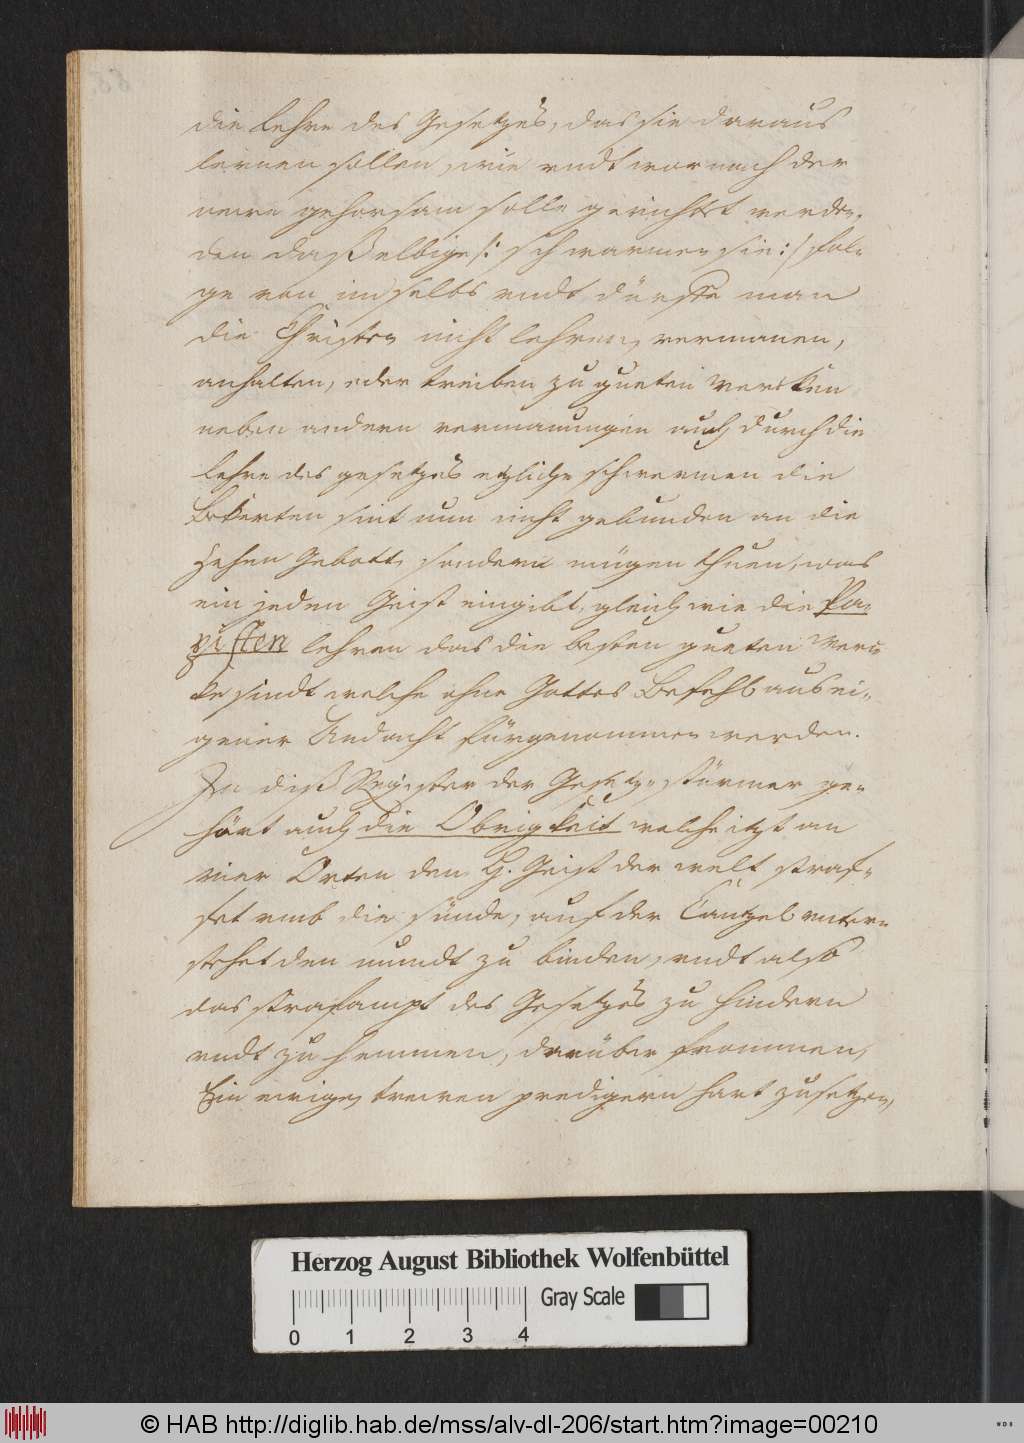 die Lehre des Gesetzes, das sie daraus
lernen sollen, wie vndt wornach der
newe gehorsam solle gerichtet werden,
den daßelbige /: schwarmen sie :/ fol=
ge von im selbs vndt dürffe man
die Christen nicht lehren, vermanen,
anhalten, oder treiben zu gueten Wercken
neben andern vermanungen auch durch die
lehre des gesetzes etzliche schwermen die
Bekerten sint nun nicht gebunden an die
Zehen Gebott, sondern mügen thuen, was
ein jeden Geist eingibt, gleich wie die Pa=
pisten lehren das die besten gueten Werc=
ke sindt welche ohne Gottes Befehl aus ei=
gener Andacht fürgenommen werden.
In diß Register der Gesetz=stürmer ge=
hört auch die Obrigkeit welche itzt an
vier Orten den H. Geist der welt straf=
fet vmb die sünde, auf der Cantzel vnter=
stehet den mundt zu binden, vndt also
das strafampt des Gesetzes zu hindern
vndt zu hemmen, darüber frommen,
Ein eivrigen trewen predigern hart zusetzen,
Herzog August Bibliothek Wolfenbüttel
Gray Scale
0 1 2 3 4
© HAB http://diglib.hab.de/mss/alv-dl-206/start.htm?image=00210